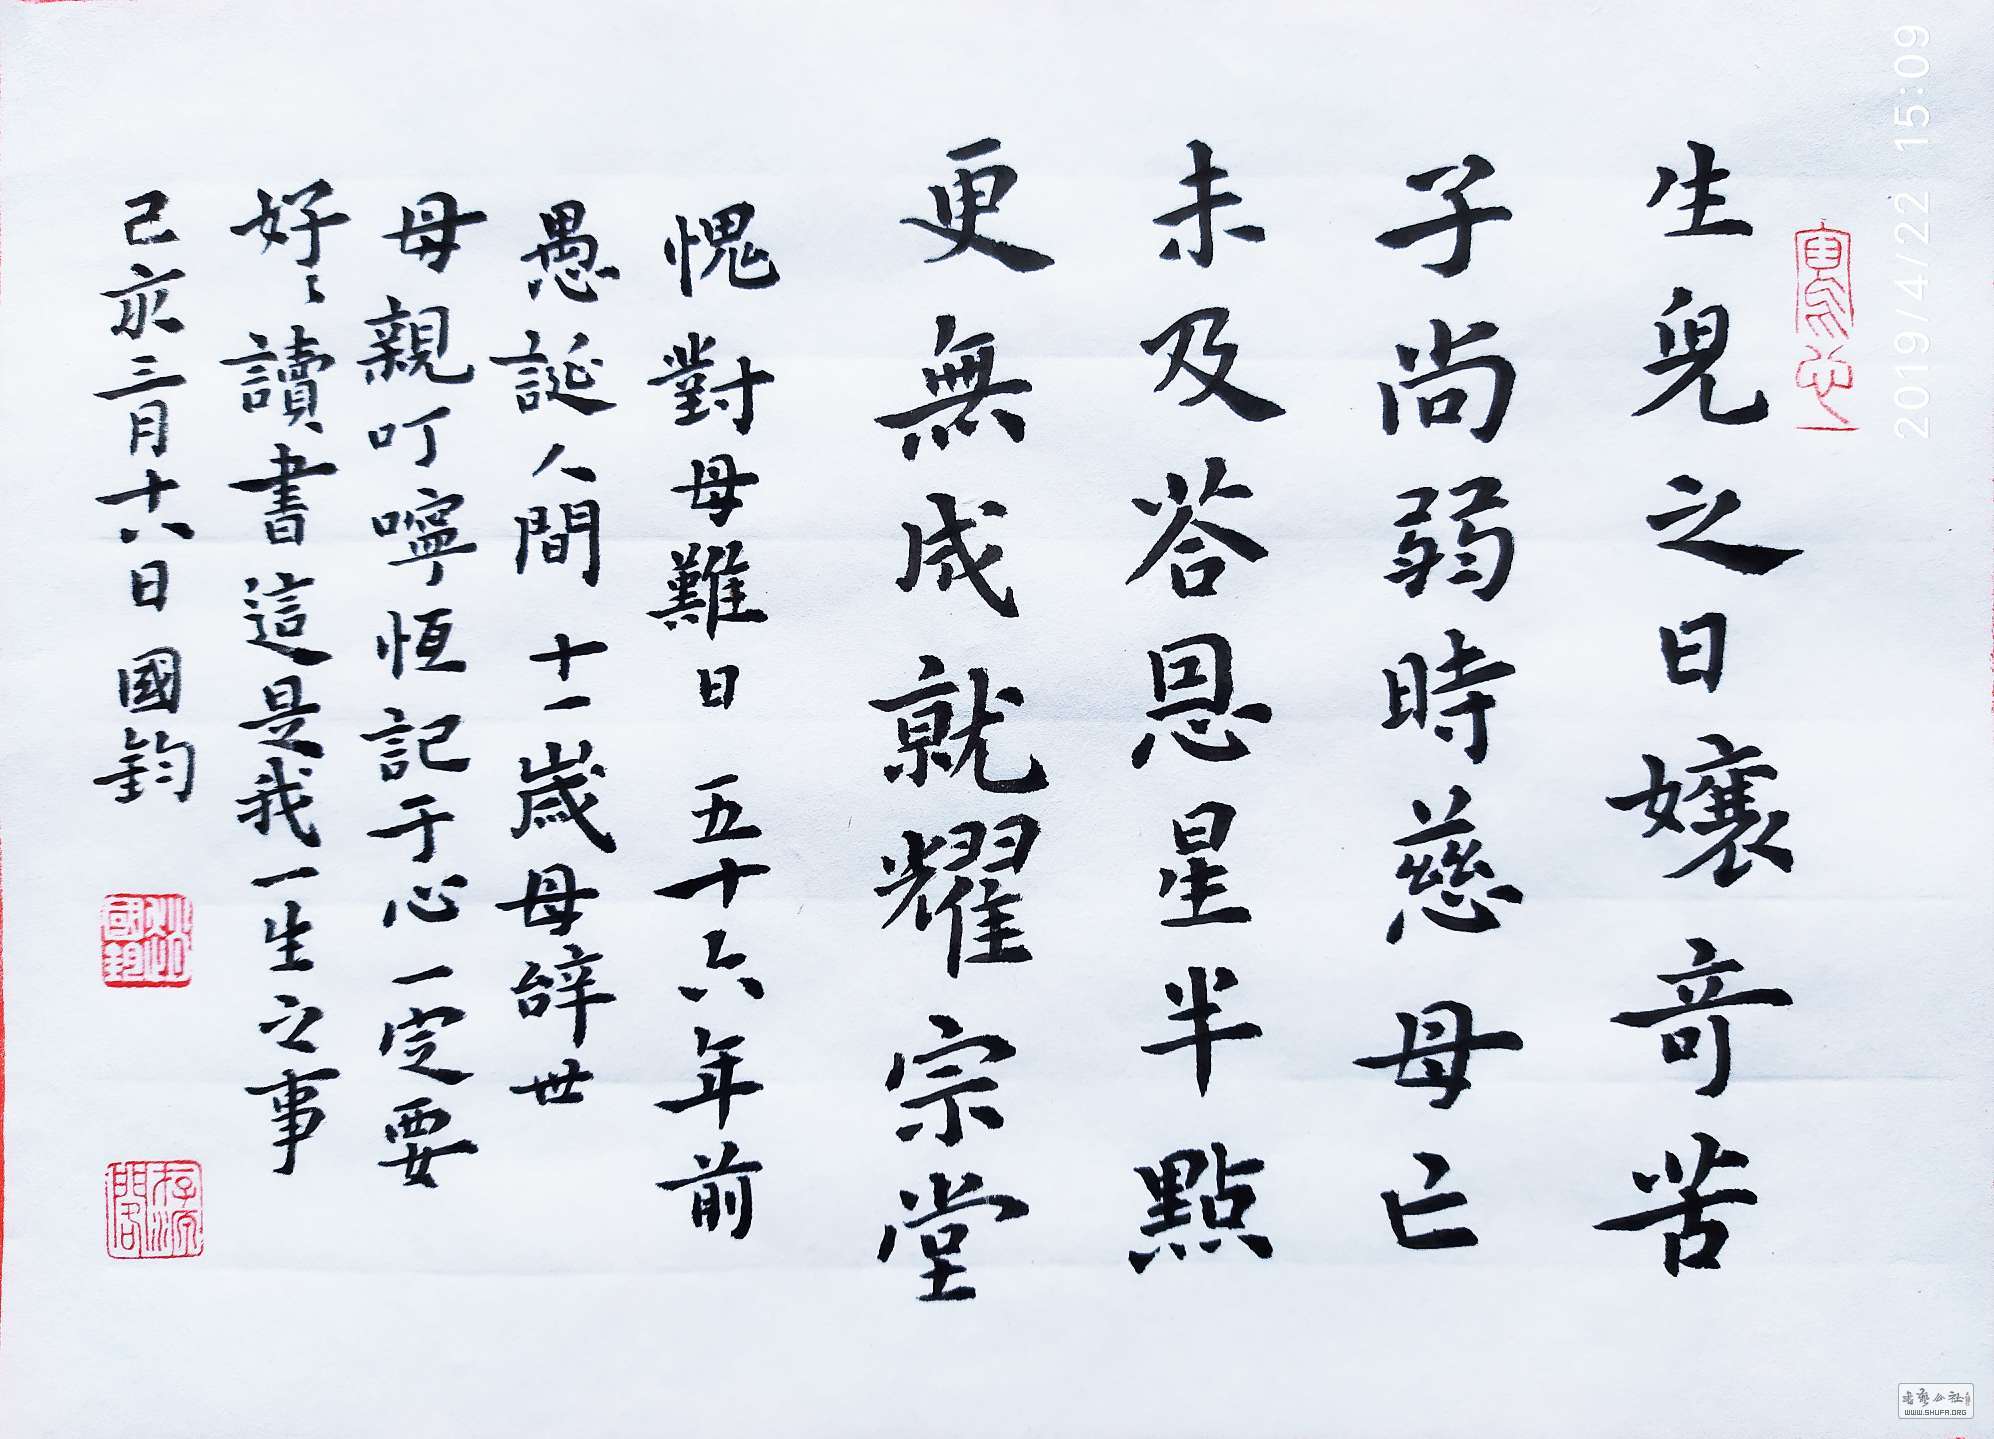 2019/4/22 15:09
生兒之日孃奇苦
子尚弱時慈母亡
未及荅恩星半點
更無成就耀宗堂
愧對母難日 五十六年前
愚誕人間 十一歲母辭世
母親叮嚀恆記于心一定要
好〻讀書這是我一生之事
己亥三月十八日 國鈞
書藝公社
WWW.SHUFA.ORG